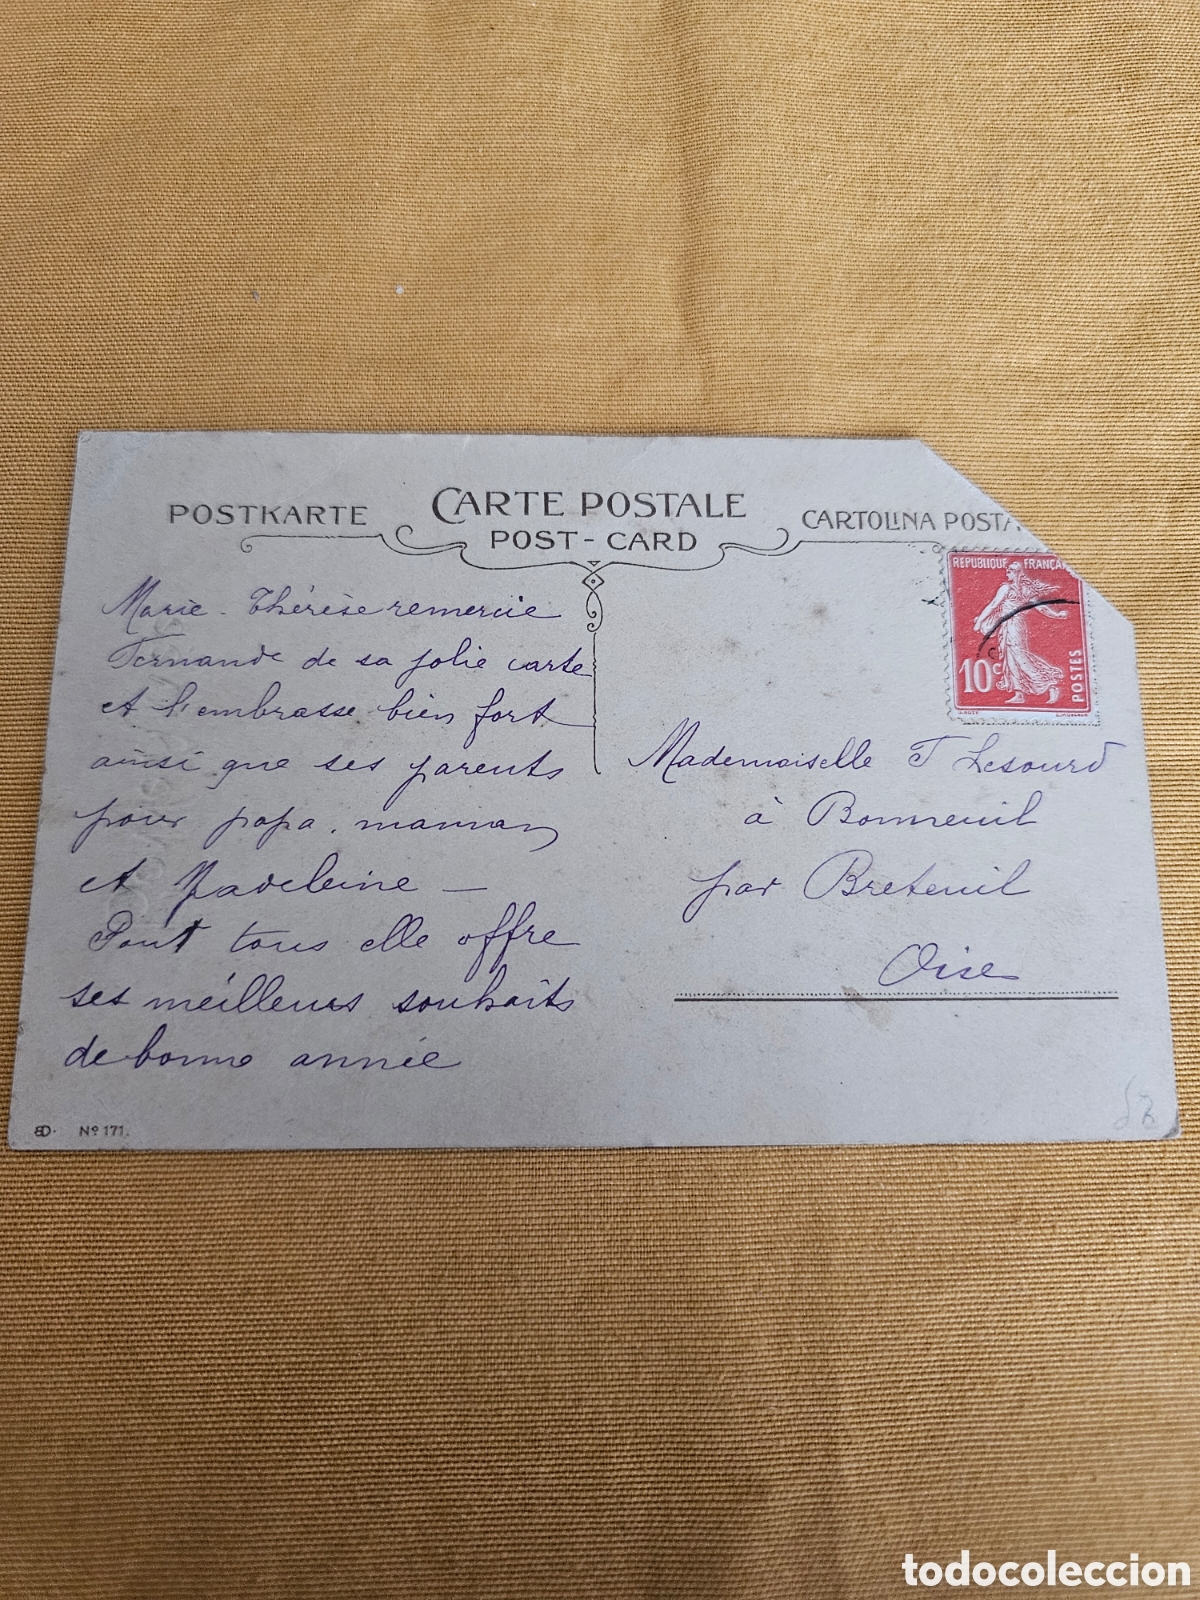 POSTKARTE
CARTE POSTALE
POST-CARD
CARTOLINA POSTA
REPUBLIQUE FRANÇA
10c
POSTES
Marie-Thérèse remercie
Fernande de sa jolie carte
et l'embrasse bien fort
ainsi que ses parents
pour papa, maman
et Madeleine —
Pour tous elle offre
ses meilleurs souhaits
de bonne année
Mademoiselle F Lesourd
à Bonneuil
par Breteuil
Oise
ED. Nº 171.
todocoleccion